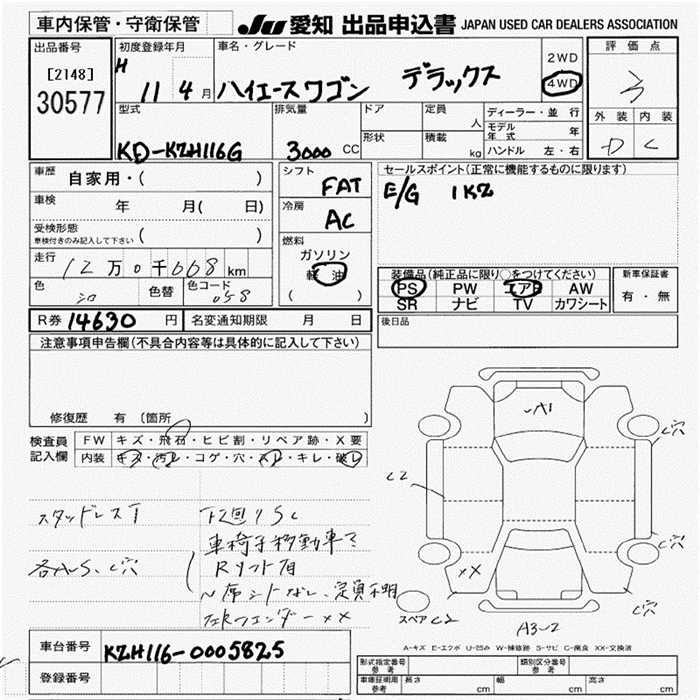 車内保管・守衛保管
JU 愛知 出品申込書 JAPAN USED CAR DEALERS ASSOCIATION
出品番号
[2148]
30577
初度登録年月
H 11 4 月
車名・グレード
ハイエースワゴン デラックス
2WD
4WD
評価点
3
外装 内装
D C
型式
KD-KZH116G
排気量
3000 CC
ドア
形状
定員 人
積載 kg
ディーラー・並行
モデル年式 年
ハンドル 左・右
車歴 自家用・( )
車検 年 月( 日)
受検形態 ( )
車検付きのみ記入して下さい
走行 12万0千668km
色 シロ 色替 色コード 058
シフト
FAT
冷房
AC
燃料
ガソリン
軽油
( )
セールスポイント(正常に機能するものに限ります)
E/G 1KZ
装備品(純正品に限り○をつけてください)
PS PW エアB AW
SR ナビ TV カワシート
新車保証書
有・無
R券 14630 円 名変通知期限 月 日
後日品
注意事項申告欄(不具合内容等は具体的に記入して下さい)
修復歴 有 (箇所 )
検査員記入欄
FW キズ・飛石・ヒビ割・リペア跡・X要
内装 キズ・汚レ・コゲ・穴・スレ・キレ・破レ
スタッドレスT
各A.S、C穴
下廻りSC
車椅子移動車
Rリフト有
定員不明
フェンダーXX
A1
C穴
C2
C穴
XX
C穴
スペア C2
A3-2
A-キズ E-エクボ U-凹み W-補修跡 S-サビ C-腐食 XX-交換済
車台番号 KZH116-0005825
登録番号
形式指定番号 参考
類別区分番号 参考
車庫証明用 参考 長さ cm 幅 cm 高さ cm